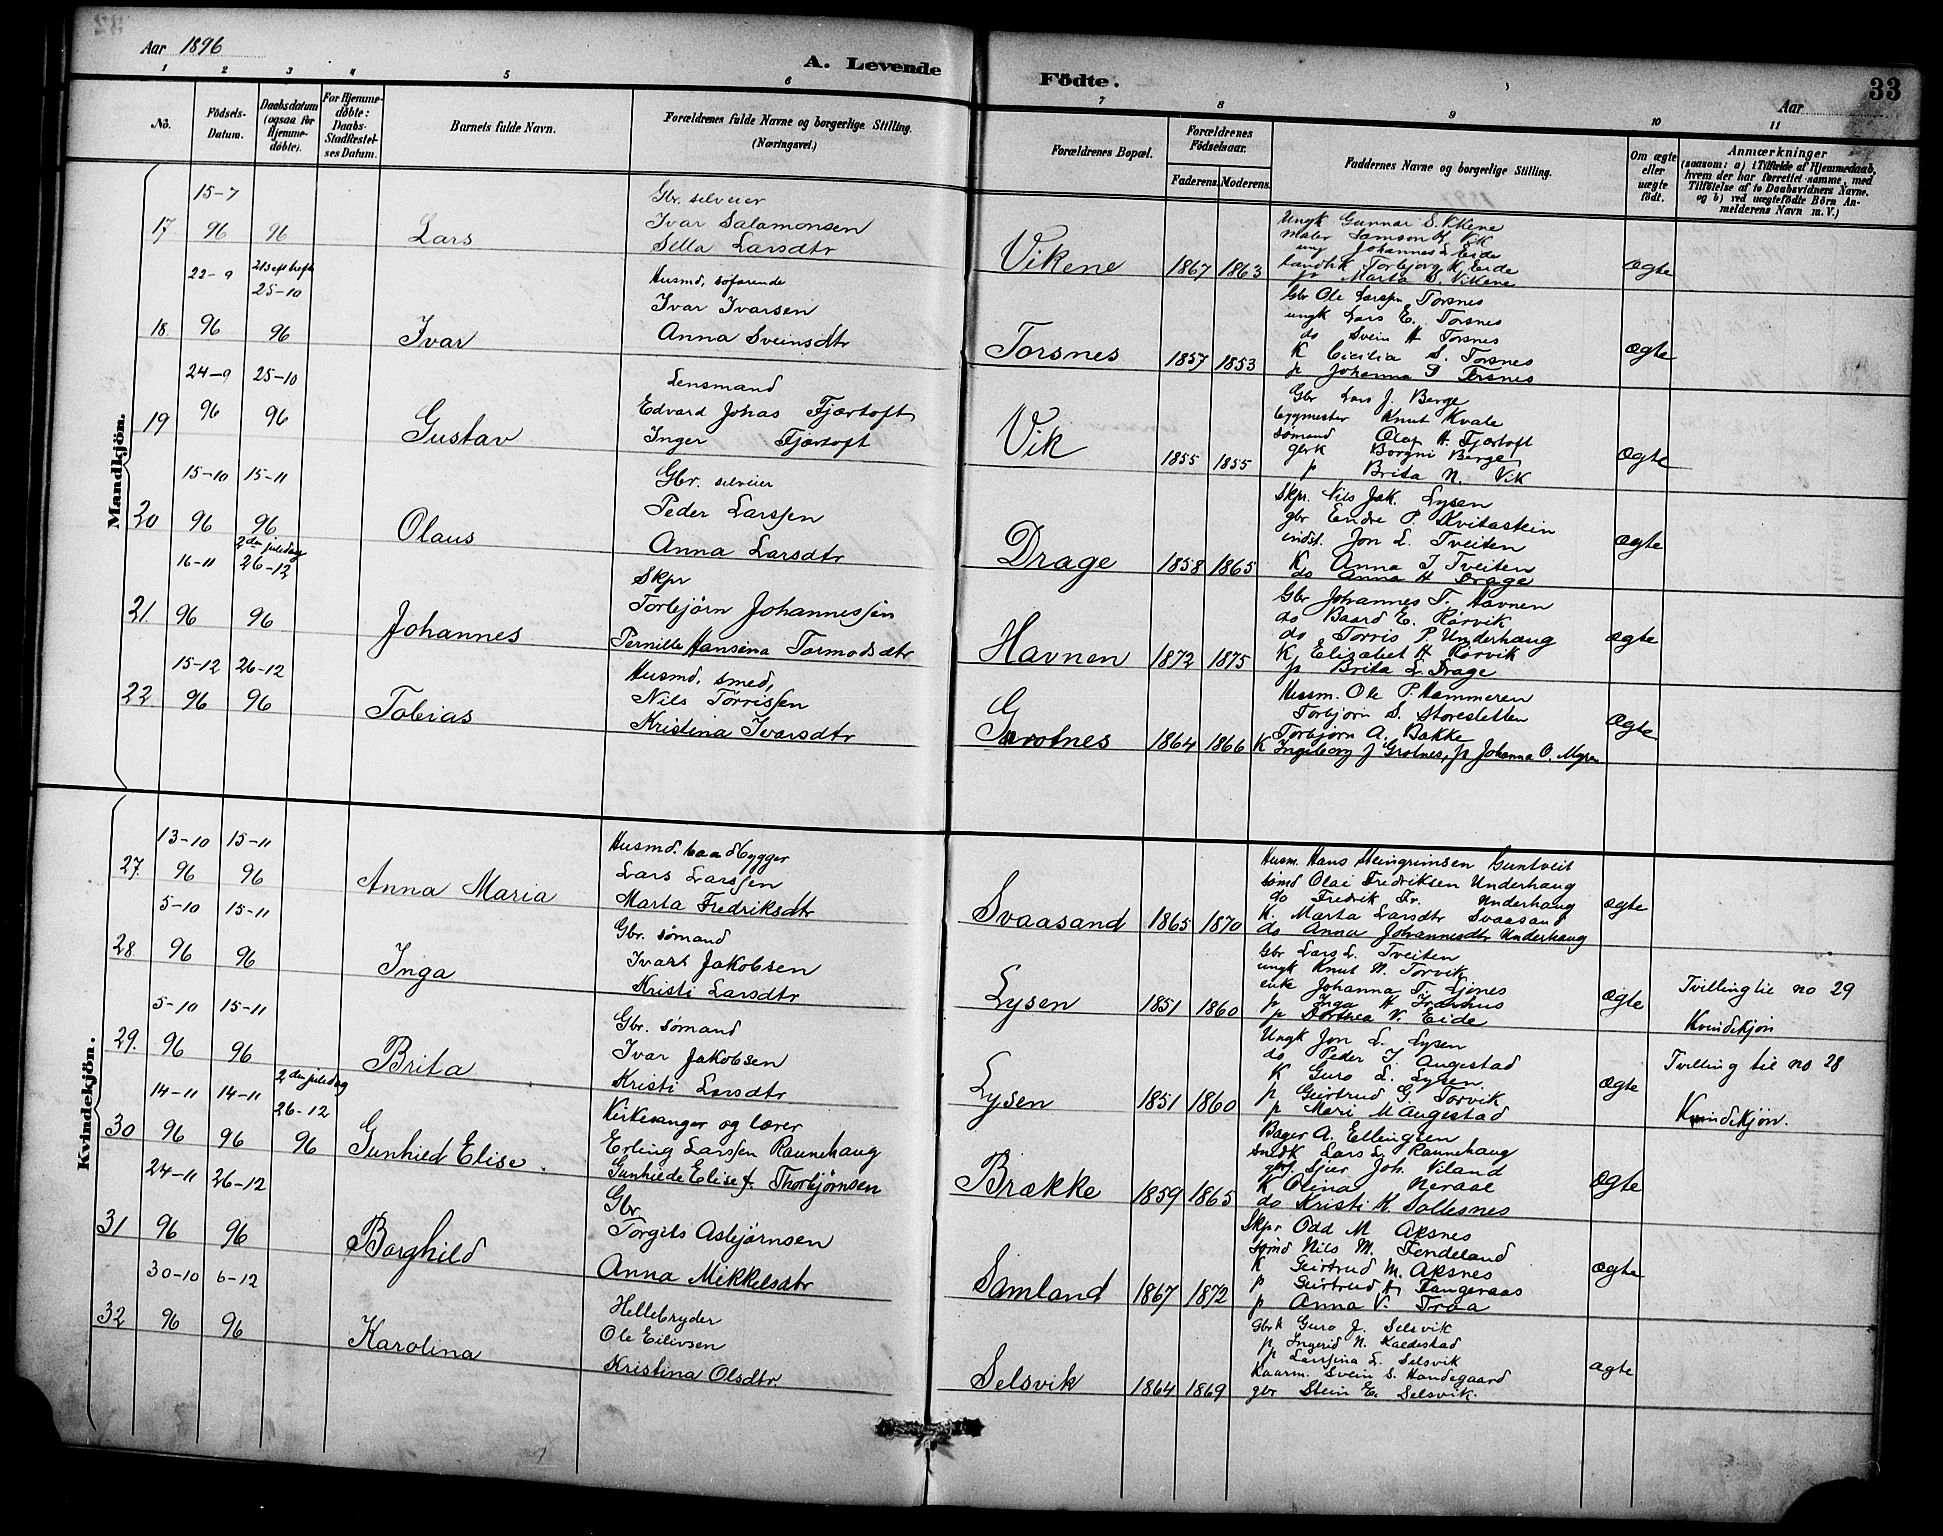 Aar 1896
A. Levende Födte.
33
Aar
1 2 3 4 5 6 7 8 9 10 11
No.
Födsels-Datum.
Daabsdatum (ogsaa for Hjemme-døbte).
For Hjemme-døbte: Daabs-Stadfæstel-ses Datum.
Barnets fulde Navn.
Forældrenes fulde Navne og borgerlige Stilling. (Næringsvei.)
Forældrenes Bopæl.
Forældrenes Födselsaar.
Faderens. Moderens.
Faddernes Navne og borgerlige Stilling.
Om ægte eller uægte født.
Anmærkninger
(saasom: a) i Tilfælde af Hjemmedaab,
hvem der har forrettet samme, med
Tilføielse af to Daabsvidners Navne.
og b) ved uægtefødte Börn An-
melderens Navn m. V.)
Mandkjön.
17 15-7 96 96
Lars
Gbr. selveier
Ivar Salamonsen
Larsdtr
Vikene 1867 1863
Ungk Gunnar S. Vikene
Johannes L Eide
Torbjorg K. Eide
p Marta Vikene
ægte
18 22-9 96 25-10 96
Ivar
Husmd, søfarende
Ivar Ivarsen
Anna Sveinsdtr
Torsnes 1857 1853
Gbr Ole Larssen Torsnes
ungk Lars E. Torsnes
do Svein H Torsnes
K Cicilia S. Torsnes
p Johanna Torsnes
ægte
19 24-9 96 25-10 96
Gustav
Lensmand
Edvard Johas Fjærtoft
Inger Fjærtoft
Vik 1855 1855
Gbr Lars J. Berge
bygmester Knut Kvale
sømand Olaf H. Fjærtoft
gbrk Borgni Berge
p Brita N. Vik
ægte
20 15-10 96 15-11 96
Olaus
Gbr. selveier
Peder Larssen
Anna Larsdtr
Drage 1858 1865
Skpr. Nils Jak. Lysen
gbr Endre P. Kvitastein
indst. Jon L. Tveiten
K Anna J Tveiten
do Anna H Drage
ægte
21 16-11 96 2den juledag 26-12 96
Johannes
Skpr
Torbjørn Johannessen
Pernille Hansena Tormodsdtr
Havnen 1872 1875
Gbr Johannes T. Havnen
do Baard E. Rørvik
do Torris P. Underhaug
K Elizabet H Rørvik
p Brita L. Drage
ægte
22 15-12 96 26-12 96
Tobias
Husmd, smed,
Nils Tørrissen
Kristina Ivarsdtr
Grotnes 1864 1866
Husm. Ole P. Hammeren
Torbjørn S. Storesletten
Torbjørn A. Bakke
K Ingeborg J Grotnes, p Johanna O. Myren
ægte
Kvindekjön.
27. 13-10 96 15-11 96
Anna Maria
Husmd. baadbygger
Lars Larssen
Marta Fredriksdtr
Svaasand 1865 1870
Husm. Hans Steingrimsen Guntveit
sømd Olai Fredriksen Underhaug
do Fredrik Fr. Underhaug
K. Marta Larsdtr Svaasand
do Anna Johannesdtr Underhaug
ægte
28 5-10 96 15-11 96
Inga
Gbr. sømand
Ivar Jakobsen
Kristi Larsdtr
Lysen 1851 1860
Gbr Lars L. Tveiten
ungk Knut N. Torvik
enke Johanna T. Ljones
p Inga H
p Dorthea V. Eide
ægte
Tvilling til no 29
Kvindekjøn
29. 5-10 96 15-11 96
Brita
Gbr. sømand
Ivar Jakobsen
Kristi Larsdtr
Lysen 1851 1860
Ungk Jon L. Lysen
do Peder J Augestad
K Guro L. Lysen
p Geirtrud G. Torvik
p Mari M Augestad
ægte
Tvilling til no 28
Kvindekjøn.
30 14-11 96 14-11 96 2den juledag 26-12 96
Gunhild Elise
Kirkesanger og lærer
Erling Larssen Raunehaug
Gunhilde Elise f. Thorbjørnsen
Brække 1859 1865
Bager A. Ellingsen
Lars L. Raunehaug
Sjur Joh. Viland
K Olina Neraal
do Kristi K Soltesnes
ægte
31 24-11 96 26-12 96
Borghild
Gbr
Torgils Asbjørnsen
Anna Mikkelsdtr
Samland 1867 1872
Skpr Odd M Aksnes
sømd Nils M. Tendeland
K Geirtrud M. Aksnes
p Geirtrud Fangeraas
p Anna V. Troa
ægte
32 30-10 96 6-12 96
Karolina
Hellebryder
Ole Eilivsen
Kristina Olsdtr.
Selsvik 1864 1869
Gbrk Guro J. Selsvik
p Ingerid N. Kaldestad
p Larsina L. Selsvik
Kaarm. Svein S. Handegaard
gbr Stein E. Selsvik.
ægte